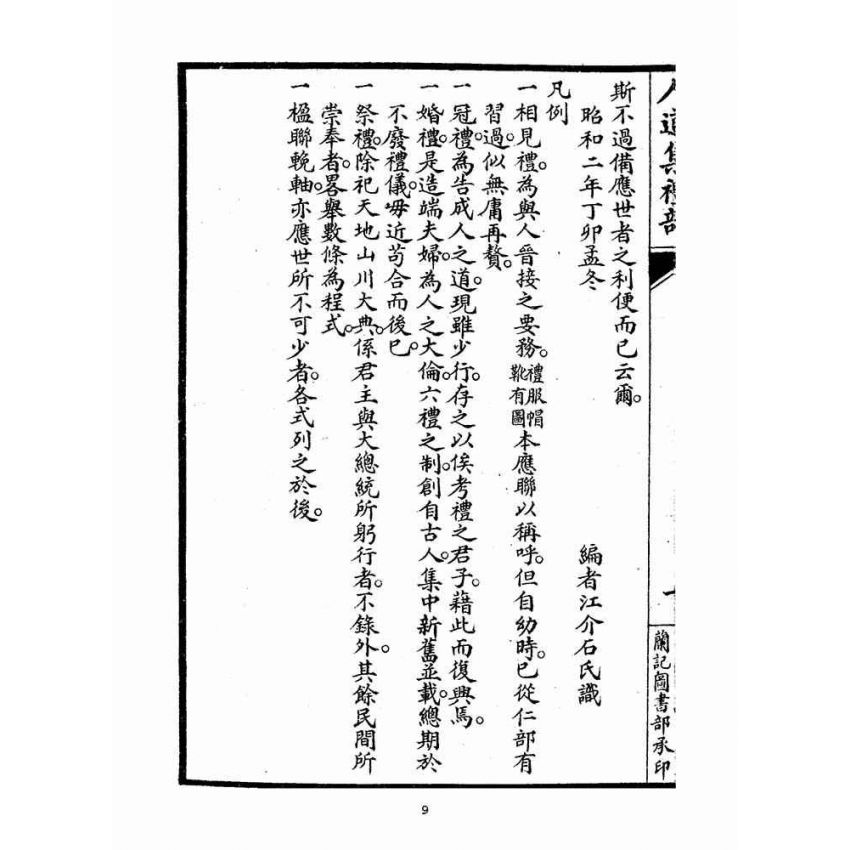 人道集禮部
蘭記圖書部承印
斯不過備應世者之利便而已云爾。
昭和二年丁卯孟冬
編者江介石氏識
凡例
一相見禮。為與人晉接之要務。禮服帽靴有圖本應聯以稱呼。但自幼時。已從仁部有
習過。似無庸再贅。
一冠禮。為告成人之道。現雖少行。存之以俟考禮之君子。藉此而復興焉。
一婚禮。是造端夫婦。為人之大倫。六禮之制。創自古人。集中新舊並載。總期於
不廢禮儀。毋近苟合而後已。
一祭禮。除祀天地山川大典。係君主與大總統所躬行者。不錄外。其餘民間所
崇奉者。畧舉數條為程式。
一楹聯輓軸。亦應世所不可少者。各式列之於後。
9